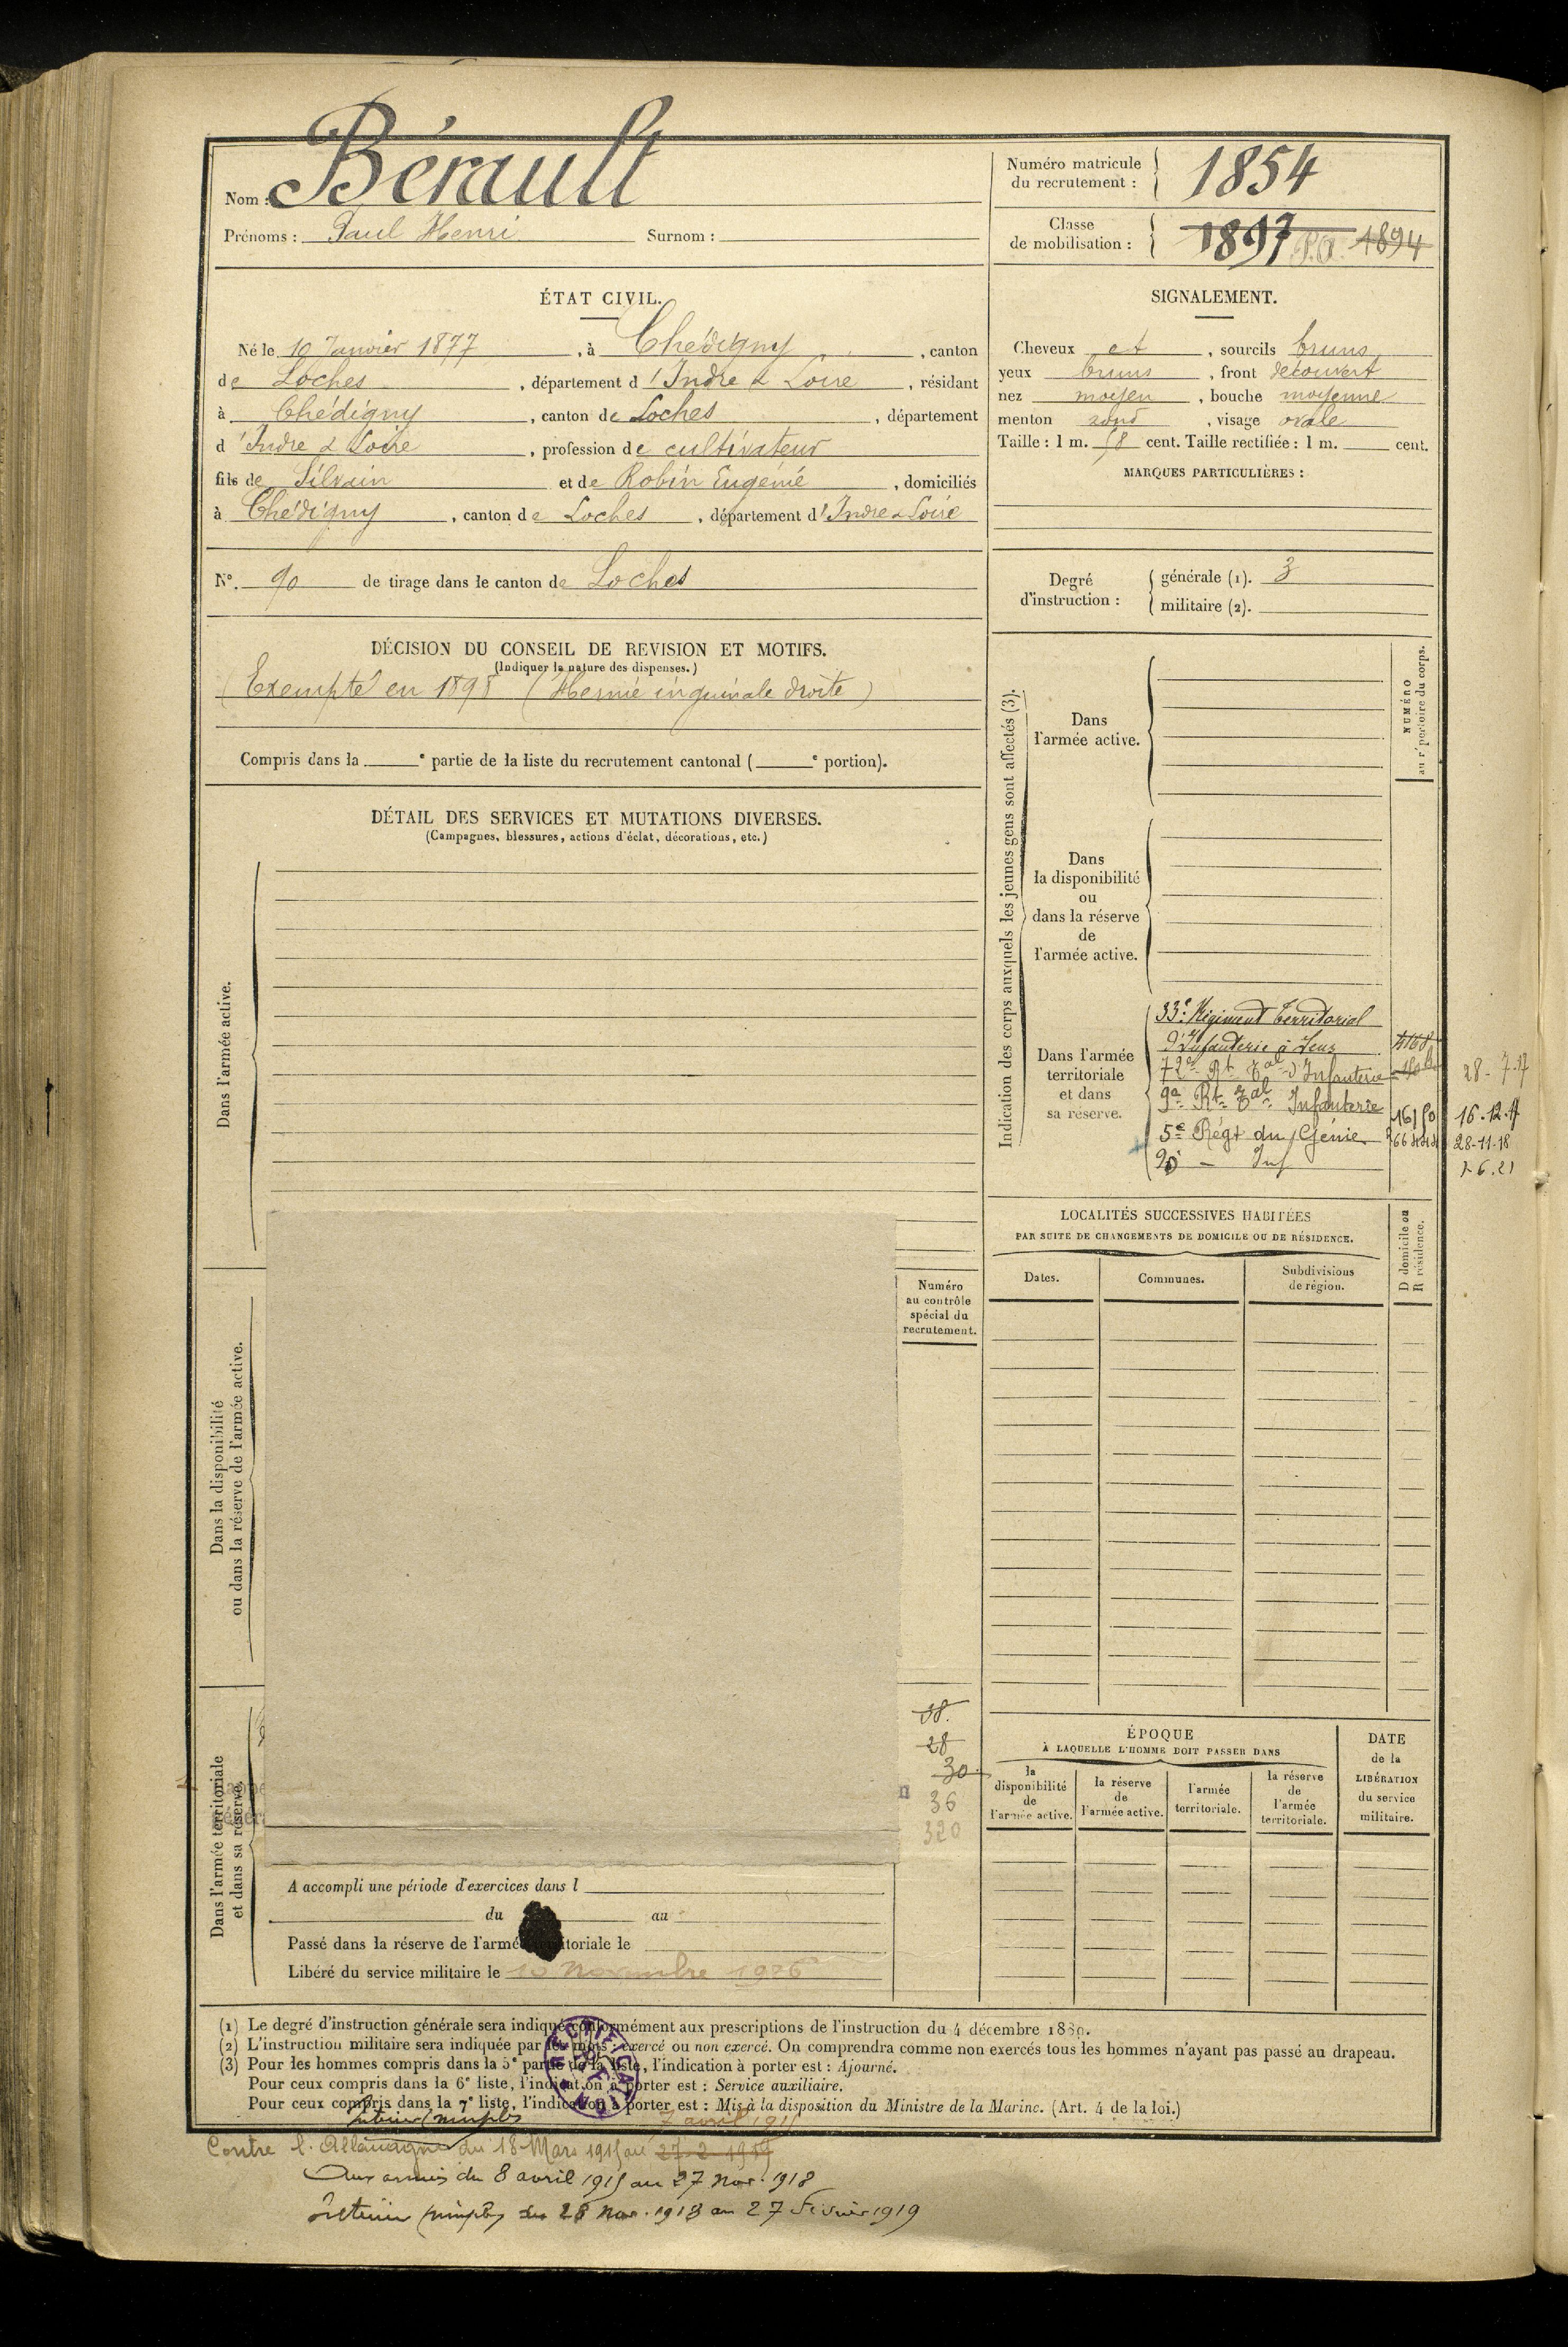 Nom : Bérault
Prénoms : Paul Henri Surnom :
Numéro matricule du recrutement : 1854
Classe de mobilisation : 1897 P.A. 1894
ÉTAT CIVIL.
Né le 10 Janvier 1877, à Chédigny, canton
de Loches, département d'Indre & Loire, résidant
à Chédigny, canton de Loches, département
d'Indre & Loire, profession de cultivateur
fils de Silvain et de Robin Eugénie, domiciliés
à Chédigny, canton de Loches, département d'Indre & Loire
N° 90 de tirage dans le canton de Loches
SIGNALEMENT.
Cheveux et, sourcils bruns
yeux bruns, front découvert
nez moyen, bouche moyenne
menton rond, visage ovale
Taille : 1 m. 58 cent. Taille rectifiée : 1 m. cent.
MARQUES PARTICULIÈRES :
Degré d'instruction : générale (1). 3
militaire (2).
DÉCISION DU CONSEIL DE REVISION ET MOTIFS.
(Indiquer la nature des dispenses.)
Exempté en 1898 (Hernie inguinale droite)
Compris dans la e partie de la liste du recrutement cantonal ( e portion).
DÉTAIL DES SERVICES ET MUTATIONS DIVERSES.
(Campagnes, blessures, actions d'éclat, décorations, etc.)
Dans l'armée active.
Dans la disponibilité
ou dans la réserve de l'armée active.
Numéro
au contrôle
spécial du
recrutement.
Dans l'armée territoriale
et dans sa réserve.
28
30
36
320
A accompli une période d'exercices dans l
du au
Passé dans la réserve de l'armée territoriale le
Libéré du service militaire le 10 Novembre 1926
Indication des corps auxquels les jeunes gens sont affectés (3).
NUMÉRO
au répertoire du corps.
Dans
l'armée active.
Dans
la disponibilité
ou
dans la réserve
de
l'armée active.
Dans l'armée
territoriale
et dans
sa réserve.
33e Régiment territorial
d'Infanterie à
72e Rt Tal d'Infanterie 28-7-17
9e Rt Tal Infanterie 16150 16.12.17
5e Régt du Génie 28-11-18
Inf 1-6.21
LOCALITÉS SUCCESSIVES HABITÉES
PAR SUITE DE CHANGEMENTS DE DOMICILE OU DE RÉSIDENCE.
Dates.
Communes.
Subdivisions
de région.
D domicile ou
R résidence.
ÉPOQUE
À LAQUELLE L'HOMME DOIT PASSER DANS
la
disponibilité
de
l'armée active.
la réserve
de
l'armée active.
l'armée
territoriale.
la réserve
de
l'armée
territoriale.
DATE
de la
LIBÉRATION
du service
militaire.
(1) Le degré d'instruction générale sera indiqué conformément aux prescriptions de l'instruction du 4 décembre 1889.
(2) L'instruction militaire sera indiquée par les mots : exercé ou non exercé. On comprendra comme non exercés tous les hommes n'ayant pas passé au drapeau.
(3) Pour les hommes compris dans la 5e partie de la liste, l'indication à porter est : Ajourné.
Pour ceux compris dans la 6e liste, l'indication à porter est : Service auxiliaire.
Pour ceux compris dans la 7e liste, l'indication à porter est : Mis à la disposition du Ministre de la Marine. (Art. 4 de la loi.)
7 avril 1915
Contre l'Allemagne du 18 Mars 1915 au 27-2-1919
Aux armées du 8 avril 1915 au 27 Nov. 1918
Intérieur simple du 28 Nov. 1918 au 27 Février 1919